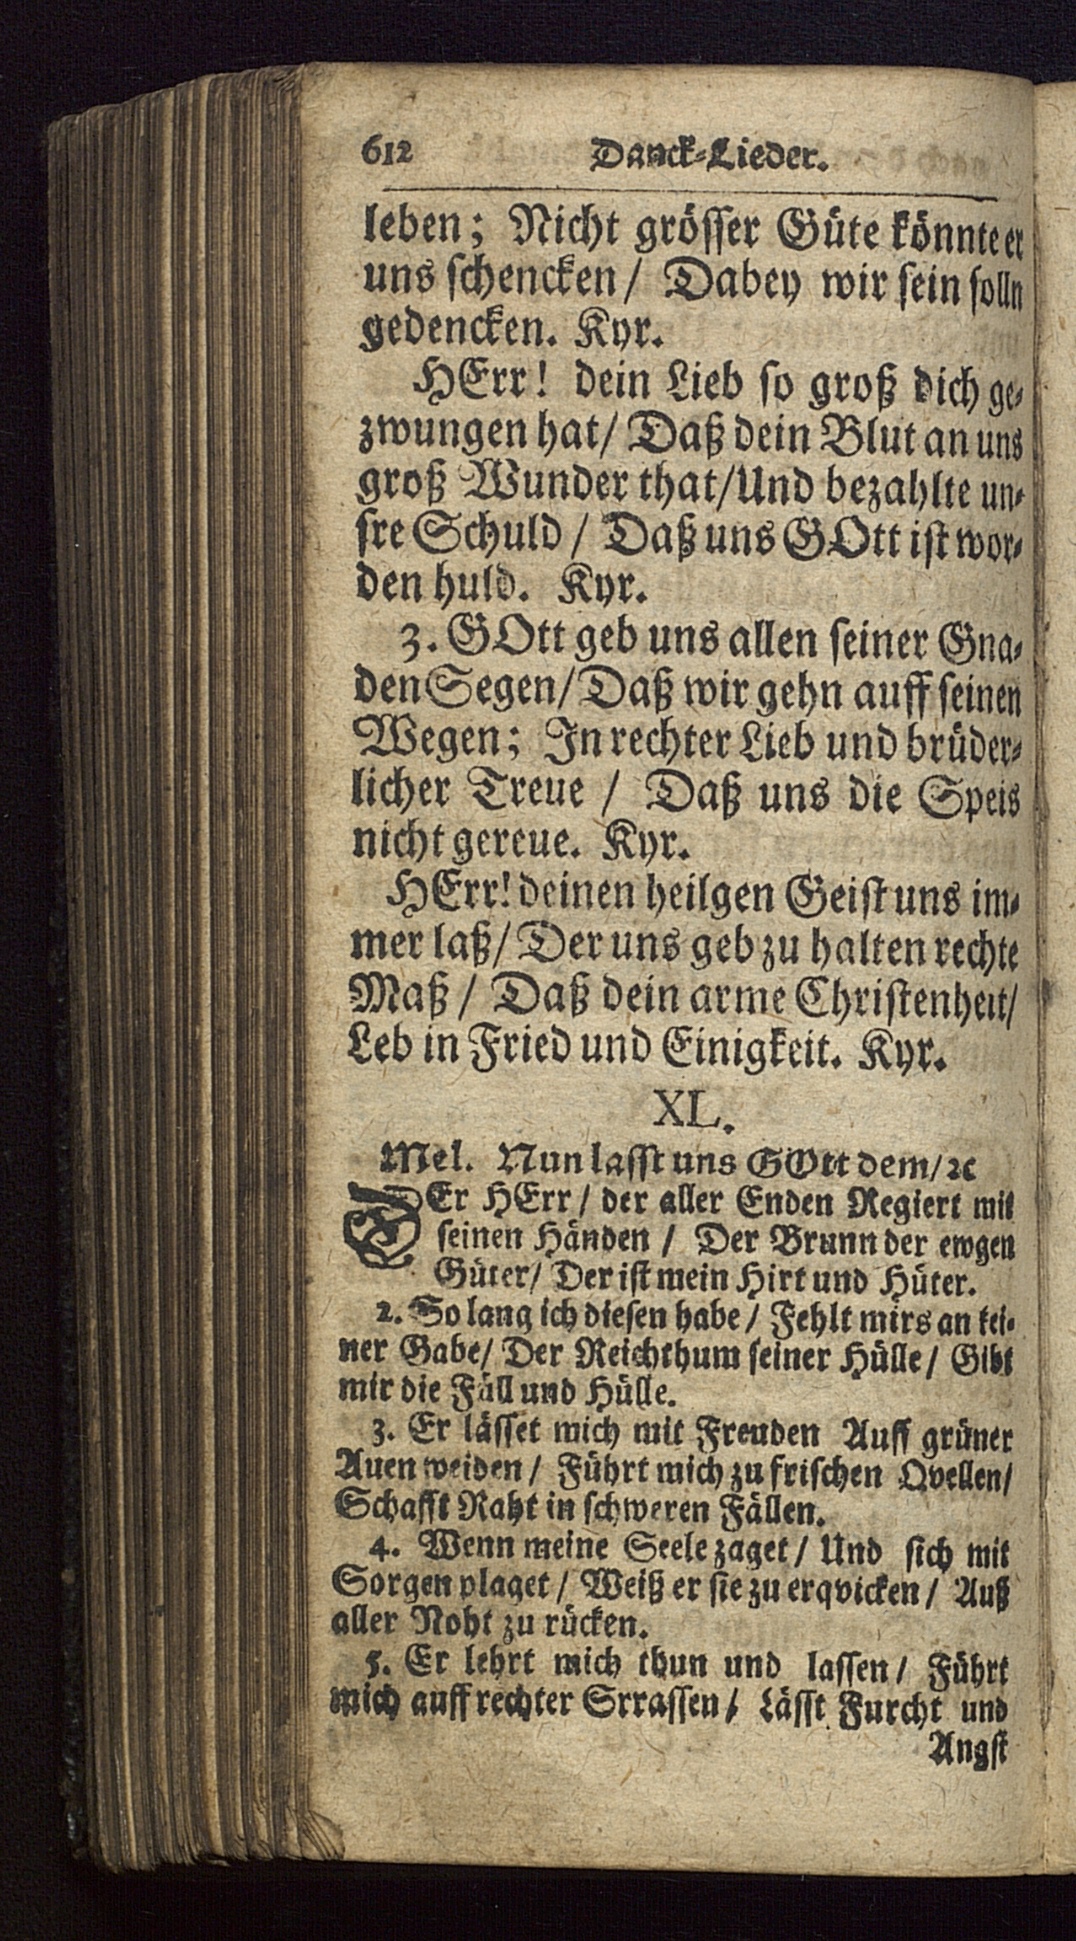 612 Danck-Lieder.
leben; Nicht grösser Güte könnte er
uns schencken / Dabey wir sein solln
gedencken. Kyr.
HErr! dein Lieb so groß dich ge-
zwungen hat / Daß dein Blut an uns
groß Wunder that / Und bezahlte un-
sre Schuld / Daß uns GOtt ist wor-
den huld. Kyr.
3. GOtt geb uns allen seiner Gna-
den Segen / Daß wir gehn auff seinen
Wegen; In rechter Lieb und brüder-
licher Treue / Daß uns die Speis
nicht gereue. Kyr.
HErr! deinen heilgen Geist uns im-
mer laß / Der uns geb zu halten rechte
Maß / Daß dein arme Christenheit /
Leb in Fried und Einigkeit. Kyr.
XL.
Mel. Nun lasst uns GOtt dem / ꝛc
DEr HErr / der aller Enden Regiert mit
seinen Händen / Der Brunn der ewgen
Güter / Der ist mein Hirt und Hüter.
2. So lang ich diesen habe / Fehlt mirs an kei-
ner Gabe / Der Reichthum seiner Hülle / Gibt
mir die Füll und Hülle.
3. Er lässet mich mit Freuden Auff grüner
Auen weiden / Führt mich zu frischen Qvellen /
Schafft Raht in schweren Fällen.
4. Wenn meine Seele zaget / Und sich mit
Sorgen plaget / Weiß er sie zu erqvicken / Auß
aller Noht zu rücken.
5. Er lehrt mich thun und lassen / Führt
mich auff rechter Srrassen / Lässt Furcht und
Angst